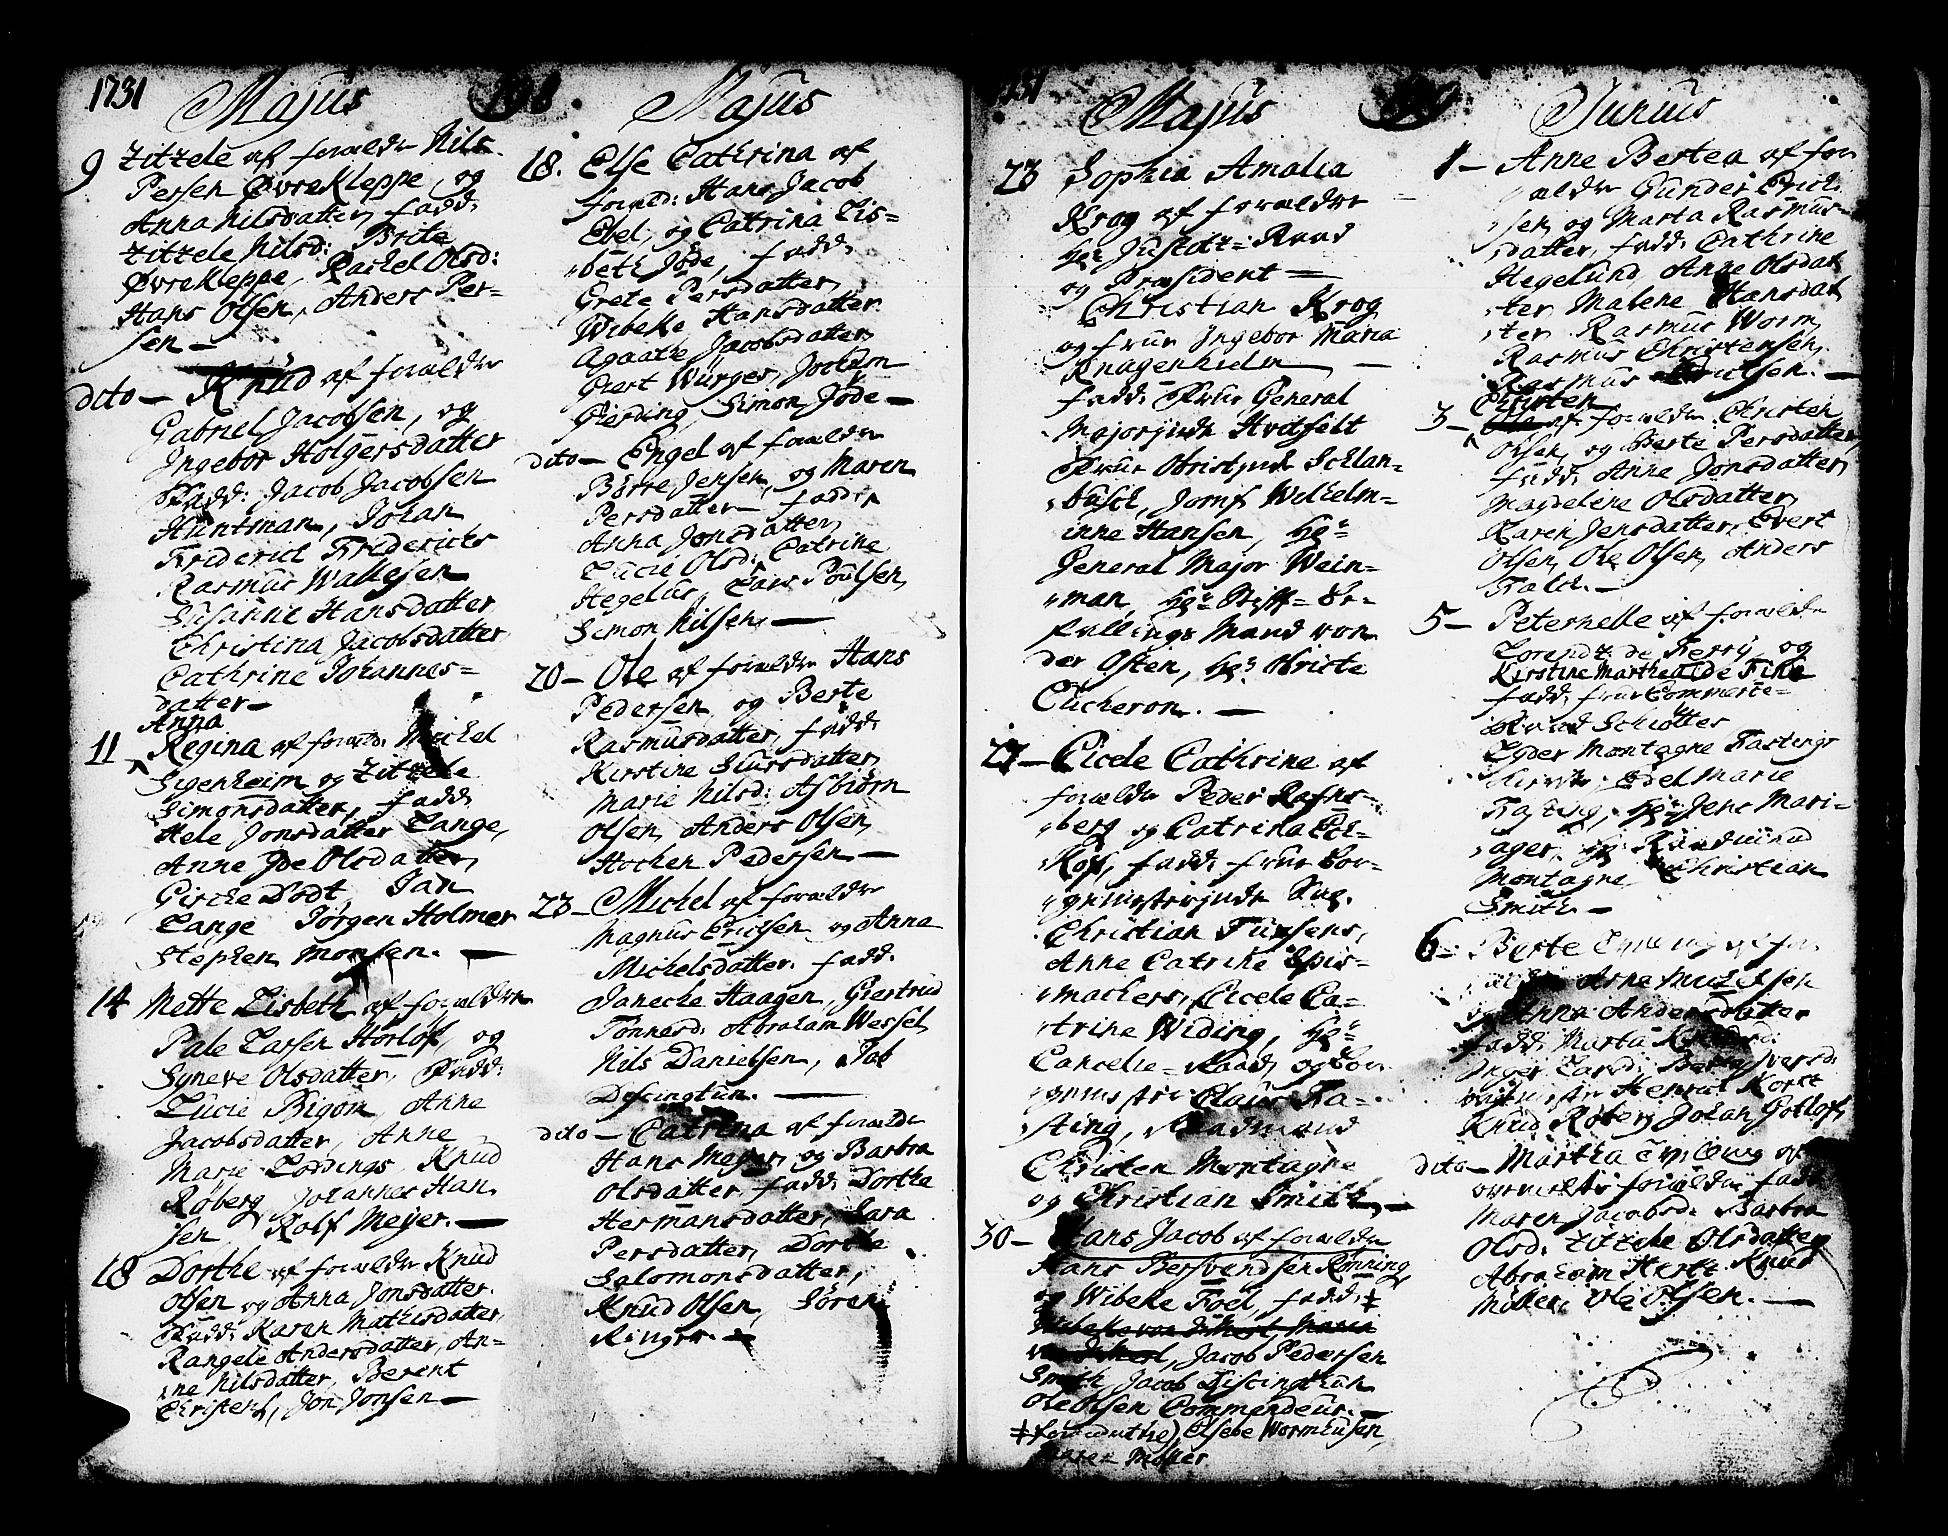 1731 Majus 198.
9 Zitzele af forældre Nils
Persen Øvrekleppe, og
Anna Nilsdatter, fadd:
Zitzele Nilsd: Brite
Øvrekleppe, Rachel Olsd:
Hans Olsen, Anders Per-
sen —
dito — Knud af forældre
Gabriel Jacobsen, og
Ingebor Holgersdatter
Fadd: Jacob Jacobsen
Huntman, Johan
Friderich Friderichs
Rasmus Wallesen
Susanne Hansdatter
Christina Jacobsdatter
Cathrine Johannes-
datter —
Anna
11 Regina af foræld: Michel
Sigenheim og Zitzele
Simonsdatter, fadd:
Hele Jonsdatter Lange,
Anne Jde Olsdatter,
Girche Dodt, Jan
Lange Jørgen Holmer
Stephen Monsen. —
14 Mette Lisbeth af forældre
Pale Larsen Horlof, og
Syneve Olsdatter, Fadd:
Lucie Bigom, Anne
Jacobsdatter, Anne
Marie Lordings, Knud
Røberg Johannes Han-
sen, Rolf Meyer. —
18 Dorthe af forældre Knud
Olsen og Anna Jonsdatter.
Fadd: Karen Mathisdatter,
Rangele Andersdatter, An-
ne Nilsdatter, Berent
Christens, Jon Jonsen —
Majus
18. Else Cathrina af
foræld: Hans Jacob
Ebel, og Catrina Lis-
beth Jøde, fadd:
Grete Persdatter,
Wibeke Hansdatter
Agaathe Jacobsdatter
Giert Würger, Jochum
Gierding, Simon Jøde —
dito — Engel af forældre
Børre Jensen, og Maren
Persdatter fadder
Anna Jonsdatter,
Lucie Olsd: Catrine
Hegelus, Lars Poulsen,
Simon Nilsen, —
20 — Ole af forældre Hans
Pedersen og Berte
Rasmusdatter, fadd:
Kirstine Siursdatter,
Marie Nilsd: Asbiørn
Olsen, Anders Olsen,
Hochen Pedersen —
23 — Michel af forældre
Magnus Erichsen og Anna
Michelsdatter. fadd:
Janecke Haagen, Giertrud
Tønnesd: Abraham Wessel
Nils Danielsen, Job
Discingtun. —
dito — Catrina af forældre
Hans Meyer og Barbra
Olsdatter fadd: Dorthe
Hermansdatter, Sara
Persdatter, Dorthe
Salomonsdatter,
Knud Olsen, Søren
Ringer. —
1731 Majus 199
23 Sophia Amalia
Krog af forældre
Hr: Justitz-Raad
og Præsident —
Christian Krog
og frue Ingebor Maria
Knagenhielm —
fadd: Frue General
Majorjnde Hvitfelt
Frue Obristjnde Schlan-
busch, Jomf: Wilhelm-
inne Hansen, Hr:
General Major Wein-
man, Hr: Stift-Be-
fallings Mand von
der Osten, Hr: Obriste
Cicheron. —
27 — Cicele Cathrine af
forældre Peder Rafns-
berg og Catrina Eck-
Kof, fadd: frue Bor-
gemesterjnde Sal.
Christian Fuysens,
Anne Catrine Spis-
machers, Cicele Ca-
trine Widing, Hr:
Cancelie-Raad og Bor-
gemester Claus Fa-
sting, Raadmand
Christen Montagne
og Christian Smith, —
30 — Hans Jacob af forældre
Hans Bersvendsen Rønning
og Wibeke Foel, fadd:
Jacob Pedersen
Smith, Jacob Discingthun
Ole Olsen Commandeur. —
Elsebe Wormhusen,
Maren Møller
Junius
1 — Anne Bertea af for-
ældre Gunder Erich-
sen og Marta Rasmus-
datter, fadd: Cathrine
Hegelund, Anne Olsdat-
ter, Malene Hansdat-
ter, Rasmus Worm,
Rasmus Christensen,
Rasmus Knudsen. —
Christen
3 — af forældre Christen
Olsen, og Berte Persdatter,
fadd: Anne Jonsdatter,
Magdelena Olsdatter,
Karen Jensdatter, Evert
Olsen, Ole Olsen, Anders
Falch. —
5 — Peternelle af forældre
Lorendz de Ferry, og
Kirstine Marthea de Fine
fadd: frue Commerce-
Raad Schiøtter
Eyder Montagne Fastings
Edel Marie
Fasting, Hr: Jens Mari-
ager, Hr: Raadmand
Montagne, Christian
Smith —
6 — Berte af for-
ældre Arne Michelsen
og Anna Andersdatter
fadd: Marta
Inger Larsd: Iversd:
Henrich Kortt
Knud Røberg, Johan Gotlof,
dito — Martha af
forældre, fadd:
Maren Jacobsd: Barbra
Olsd: Zitzele Olsdatter,
Abraham Hertz, Knud
Møller, Ole Olsen. —